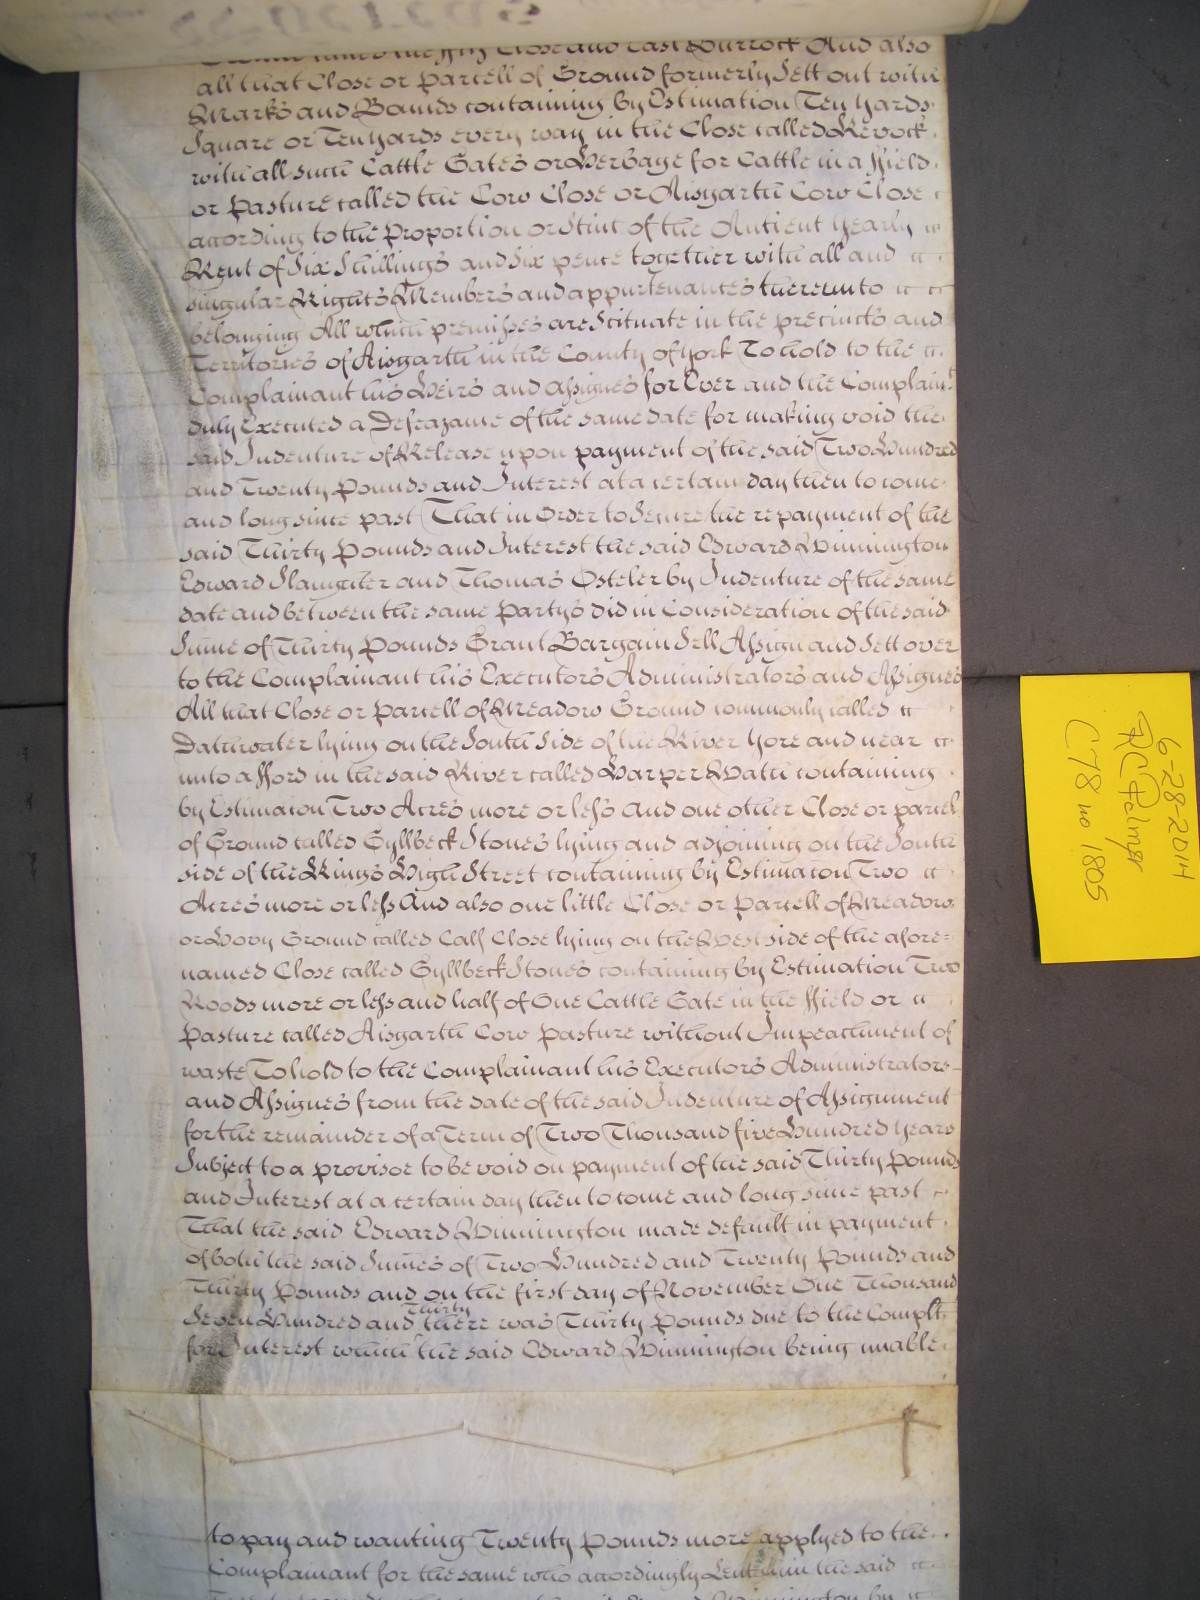 Close and East Burrock And also
all that Close or Parcell of Ground formerly Sett out with
Marks and Bounds containing by Estimation Ten Yards
Square or Ten Yards every way in the Close called Revock
with all such Cattle Gates or Herbage for Cattle in a ffield
or Pasture called the Cow Close or Aisgarth Cow Close
according to the Proportion or Stint of the Antient Yearly
Rent of Six Shillings and Six pence together with all and
singular Rights Members and appurtenances thereunto
belonging All which premisses are Scituate in the precincts and
Territories of Aisgarth in the County of York To hold to the
Complainant his Heirs and assignes for Ever and the Complain.t
duly Executed a Defeazance of the same date for making void the
said Indenture of Release upon payment of the said Two Hundred
and Twenty Pounds and Interest at a certain day then to come
and long since past That in Order to Secure the repayment of the
said Thirty Pounds and Interest the said Edward Winnington
Edward Slaughter and Thomas Osteler by Indenture of the same
date and between the same Partys did in Consideration of the said
Sume of Thirty Pounds Grant Bargain Sell Assign and Sett over
to the Complainant his Executors Administrators and Assignes
All that Close or Parcell of Meadow Ground commonly called
Dathwater lying on the South Side of the River Yore and near
unto a fford in the said River called Harper Wath containing
by Estimacon Two Acres more or less And one other Close or parcel
of Ground called Gyllbeck Stones lying and adjoining on the South
side of the Kings High Street containing by Estimacon Two
Acres more or less And also one little Close or Parcell of Meadow
or Ground called Calf Close lying on the West side of the afore=
named Close called Gyllbeck Stones containing by Estimation Two
Roods more or less and half of One Cattle Gate in the ffield or
Pasture called Aisgarth Cow Pasture without Impeachment of
waste To hold to the Complainant his Executors Administrators
and Assignes from the date of the said Indenture of Assignment
for the remainder of a Term of Two Thousand five Hundred Years
Subject to a provisoe to be void on payment of the said Thirty Pounds
and Interest at a certain day then to come and long since past
That the said Edward Winnington made default in payment
of both the said Sumes of Two Hundred and Twenty Pounds and
Thirty Pounds and on the first day of November One Thousand
Seven Hundred and Thirty there was Thirty Pounds due to the Complt
for Interest which the said Edward Winnington being unable
to pay and wanting Twenty Pounds more applyed to the
Complainant for the same who accordingly Lent him the said
Winnington by
6-28-2014
RC Palmer
C78 no 1805